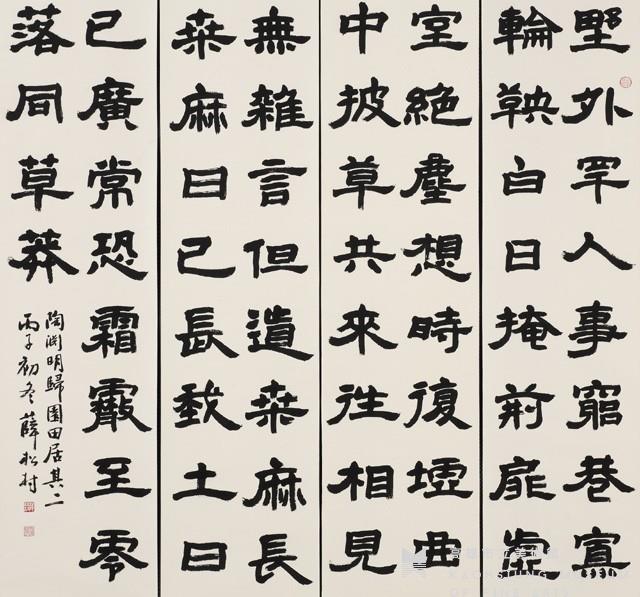 野外罕人事窮巷寡
輪鞅白日掩荊扉虛
室絕塵想時復墟曲
中披草共來往相見
無雜言但道桑麻長
桑麻日已長我土日
已廣常恐霜霰至零
落同草莽
陶淵明歸園田居其二
丙子初冬薛松村
高雄市立美術館
KAOHSIUNG MUSEUM
OF FINE ARTS